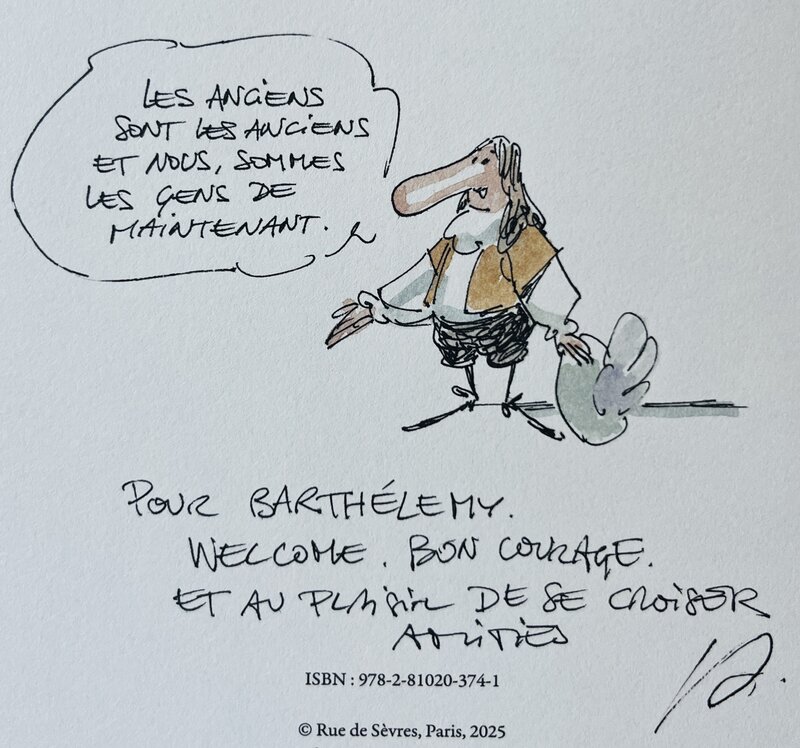 LES ANCIENS
SONT LES ANCIENS
ET NOUS, SOMMES
LES GENS DE
MAINTENANT.
POUR BARTHÉLEMY.
WELCOME. BON COURAGE.
ET AU PLAISIR DE SE CROISER
AMITIÉS
ISBN : 978-2-81020-374-1
© Rue de Sèvres, Paris, 2025